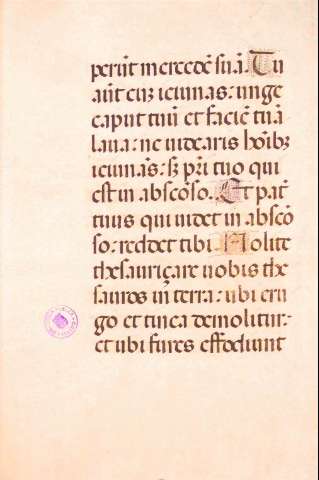 perūt mercedē suā. Tu
aūt cuȝ ieiunas: unge
caput tuū et faciē tuā
laua: ne uidearis hoībȝ
ieiunās: sȝ pr̄i tuo qui
est in abscōso. Et pat̄
tuus qui uidet in abscō
so: reddet tibi. Nolite
thesauriçare uobis the
sauros in terra: ubi eru
go et tinea demolitur:
et ubi fures effodiunt